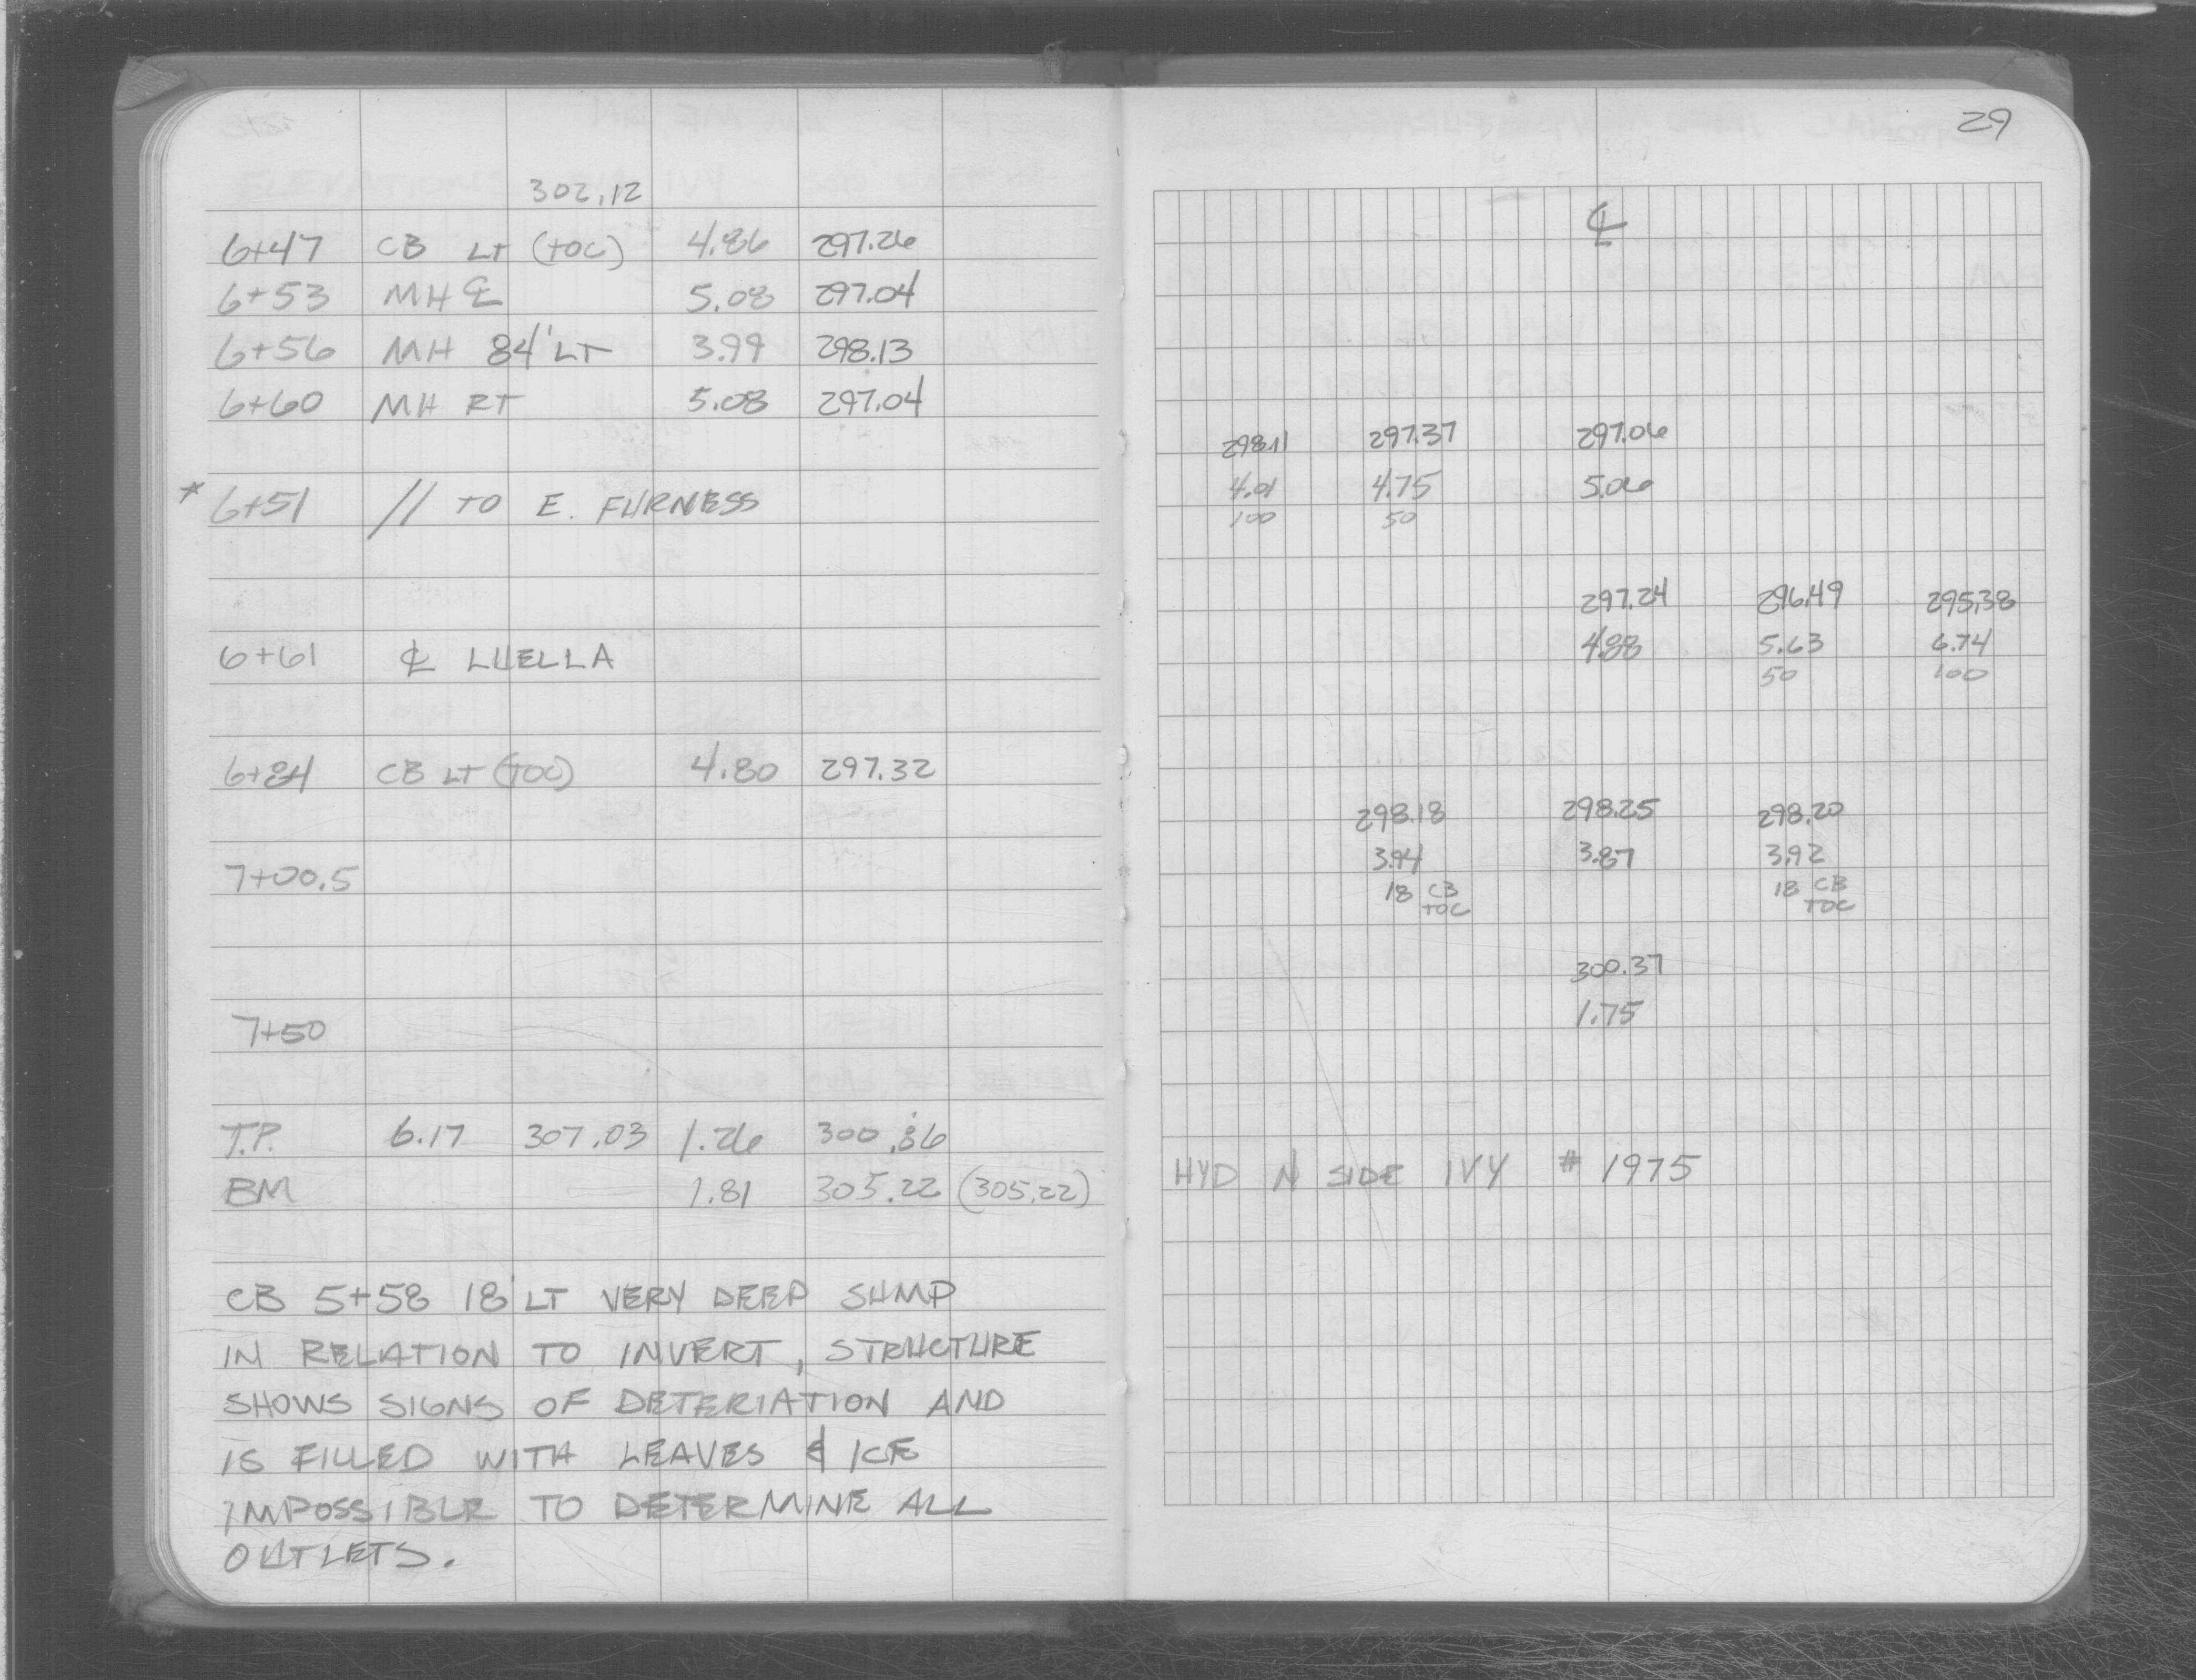 302.12
6+47 CB LT (TOC) 4.86 297.26
6+53 MH ℄ 5.08 297.04
6+56 MH 84' LT 3.99 298.13
6+60 MH RT 5.08 297.04
* 6+51 // TO E. FURNESS
6+61 ℄ LUELLA
6+84 CB LT (TOC) 4.80 297.32
7+00.5
7+50
T.P. 6.17 307.03 1.26 300.86
BM 1.81 305.22 (305.22)
CB 5+58 18' LT VERY DEEP SUMP
IN RELATION TO INVERT, STRUCTURE
SHOWS SIGNS OF DETERIATION AND
IS FILLED WITH LEAVES & ICE
IMPOSSIBLE TO DETERMINE ALL
OUTLETS.
29
℄
298.11 297.37 297.06
4.01 4.75 5.06
100 50
297.24 296.49 295.38
4.88 5.63 6.74
50 100
298.18 298.25 298.20
3.94 3.87 3.92
18 CB 18 CB
TOC TOC
300.37
1.75
HYD N SIDE IVY # 1975